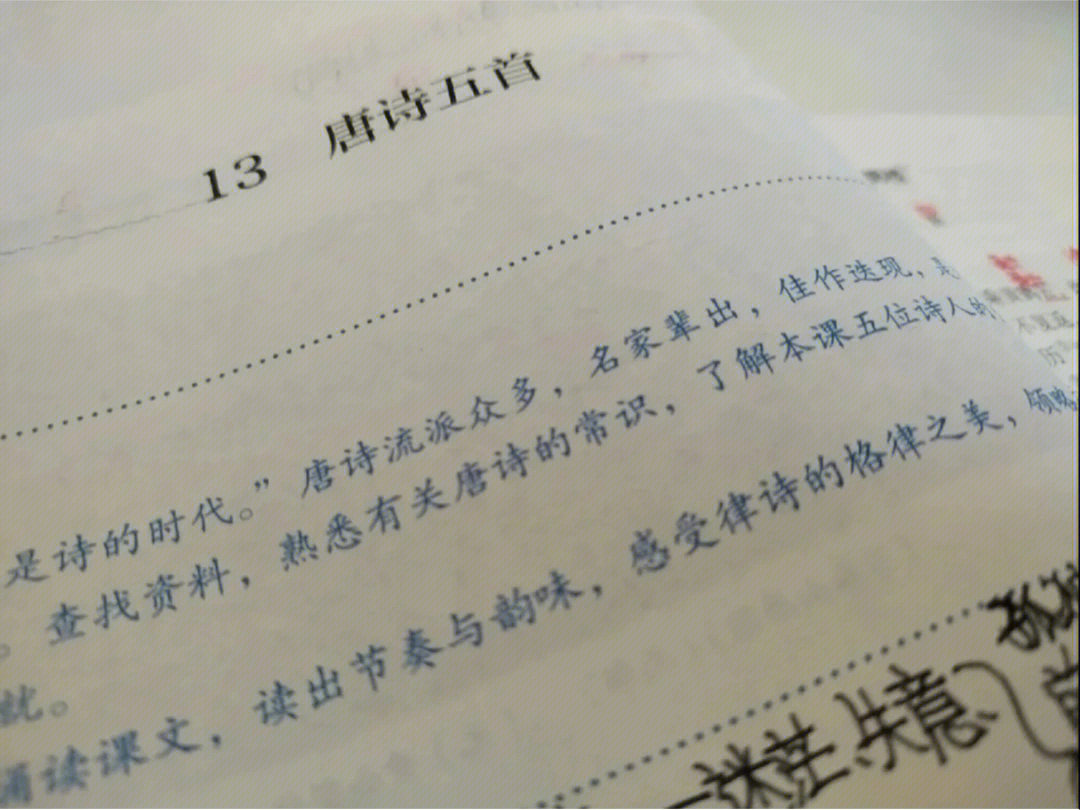 13 唐诗五首
是诗的时代。”唐诗流派众多，名家辈出，佳作迭现，是
。查找资料，熟悉有关唐诗的常识，了解本课五位诗人的
就。
诵读课文，读出节奏与韵味，感受律诗的格律之美，领略
孤独
迷茫、失意